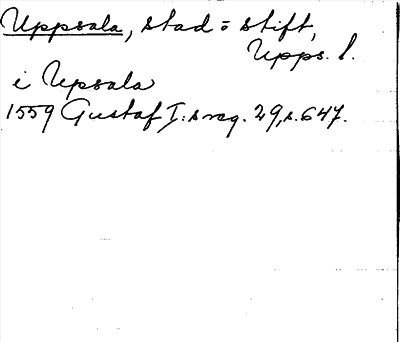 Uppsala, stad o stift,
Upps. l.
i Upsala
1559 Gustaf I:s reg. 29, s. 647.